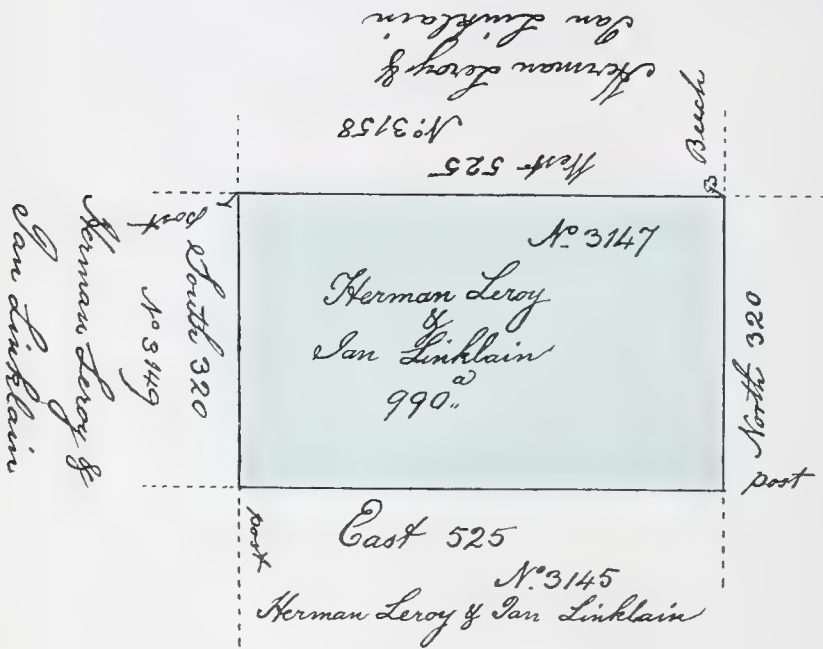 Herman Leroy &
Ian Linklain
No. 3158
West 525
Beech
B
post
South 320
No 3149
Herman Leroy &
Ian Linklain
No. 3147
Herman Leroy
&
Ian Linklain
990" a
North 320
post
post
East 525
No. 3145
Herman Leroy & Ian Linklain